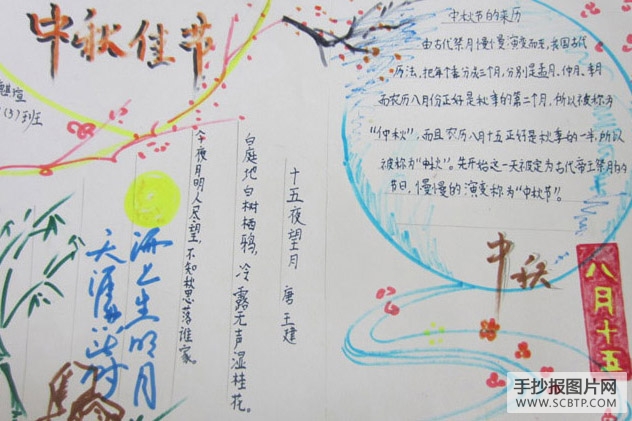 中秋佳节
(3)班
十五夜望月 唐 王建
白庭地白树栖鸦,冷露无声湿桂花。
今夜月明人尽望,不知秋思落谁家。
海上生明月
天涯共此时
中秋节的来历
由古代祭月慢慢演变而来,我国古代
历法,把每个季分成三个月,分别是孟月、仲月、季月
而农历八月份正好是秋季的第二个月,所以被称为
“仲秋”,而且农历八月十五正好是秋季的一半,所以
被称为“中秋”。先开始这一天被定为古代帝王祭月的
节日,慢慢的演变称为“中秋节”。
中秋
八月十五
手抄报图片网
WWW.SCBTP.COM